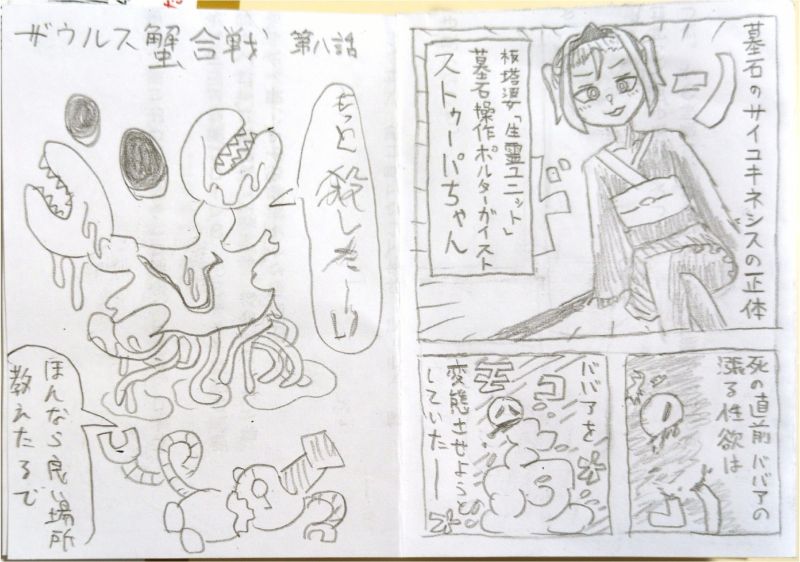 ザウルス蟹合戦 第八話
もっと殺したーい
ほんなら良い場所
教えたるで
墓石のサイコキネシスの正体
板塔婆「生霊ユニット」
墓石操作ポルターガイスト
ストゥーパちゃん
ドン
死の直前ババアの
漲る性欲は
ババアを
変態させようと
していたー
モコ